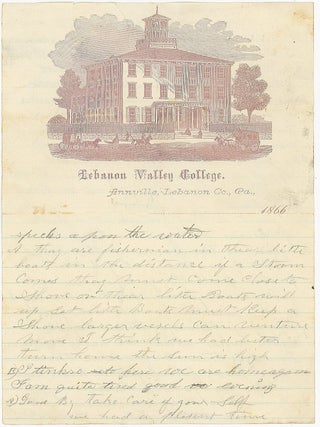 Lebanon Valley College.
Annville, Lebanon Co., Pa.,
1866
specks upon the water
A they are fisherman in thear little
boats in the distance if a Storm
Comes they Must Come Close to
Shore or thear little Boats will
up Set little Boats Must Keep a
Shore larger vesels Can venture
more I think we had better
turn home the Sun is high
B I think so here we are home again
I am quite tired good evening
A Good By take Care of your Self
we had a plesent time